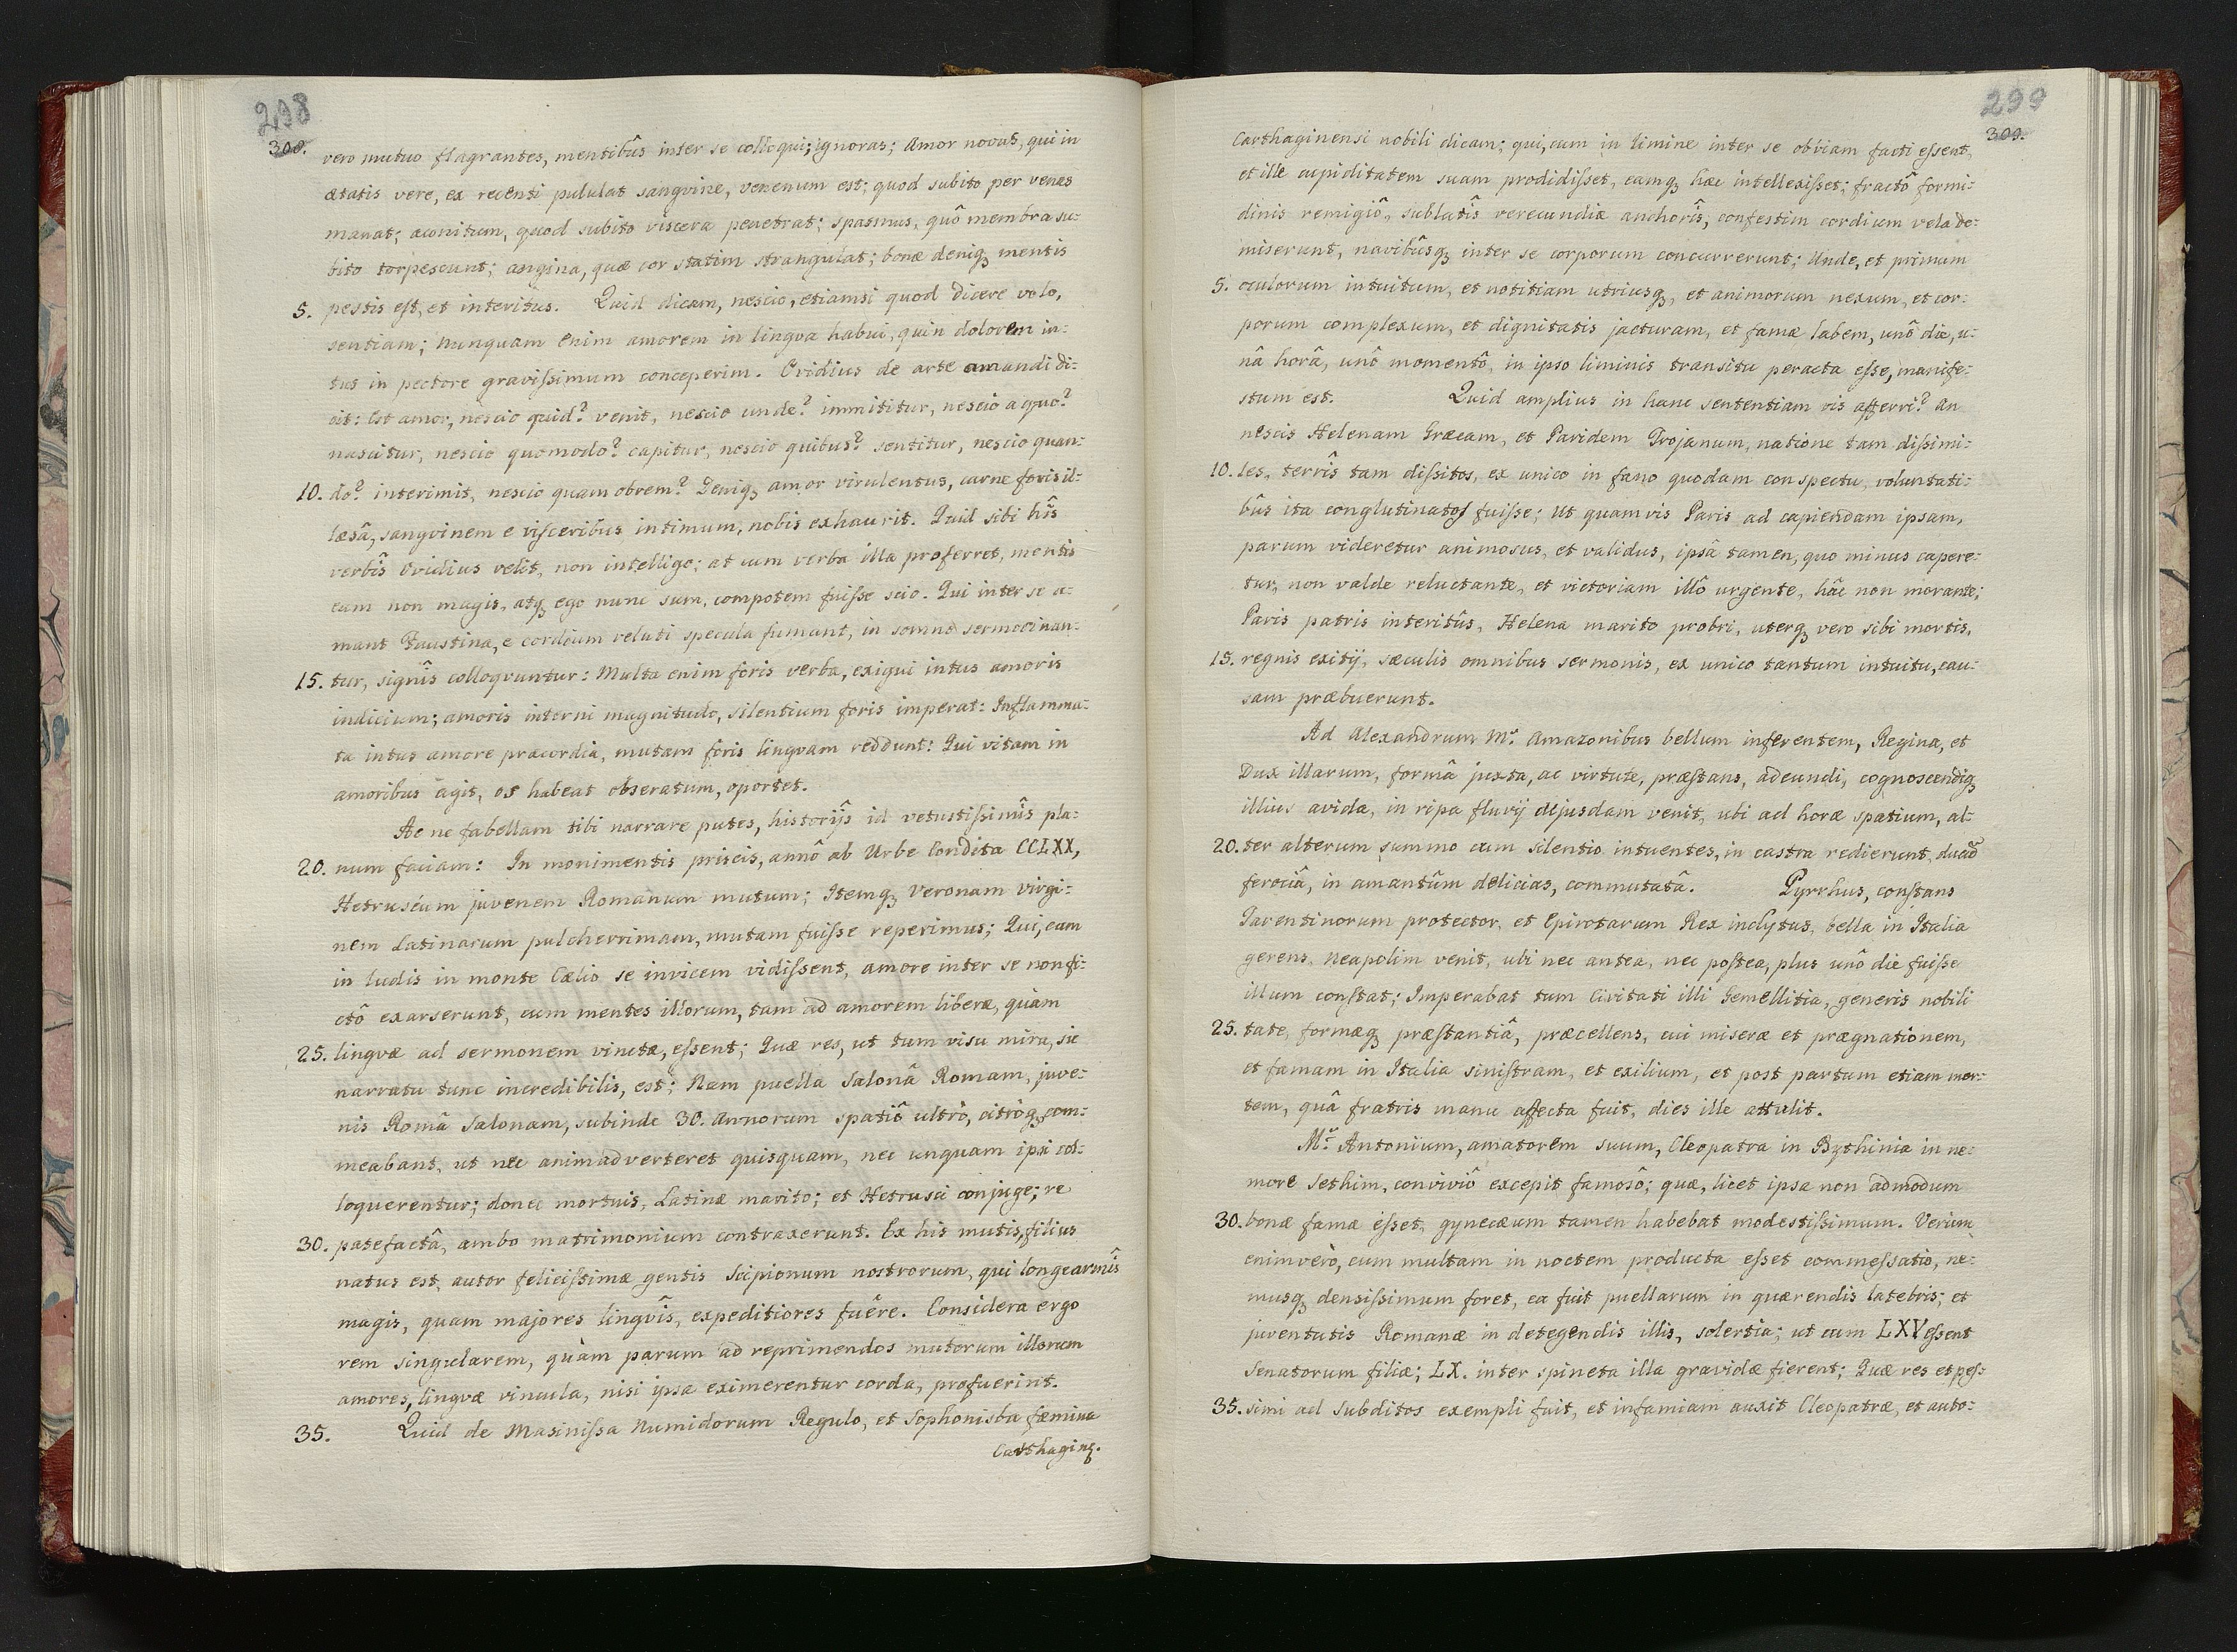 298
300.
vero mutuo flagrantes, mentibûs inter se colloqui; ignoras; Amor novus, qui in
ætatis vere, ex recenti pululat sangvine, venenum est; quod subito per venas
manat; aconitum, quod subito viscera penetrat; spasmus, quô membra su-
bito torpescunt; angina, quæ cor statim strangulat; bonæ deniqꝫ mentis
5. pestis est, et interitus. Quid dicam, nescio, etiamsi quod dicere volo,
sentiam; nunquam enim amorem in lingva habui, quin dolorem in-
tus in pectore gravissimum conceperim. Ovidius de arte amandi di-
cit: Est amor, nescio quid? venit, nescio unde? immititur, nescio a quo?
nascitur, nescio quomodo? capitur, nescio quibus? sentitur, nescio quan-
10. do? interimit, nescio quam obrem? Deniqꝫ amor virulentus, carne foris il-
læsâ, sangvinem e visceribus intimum, nobis exhaurit. Quid sibi hîs
verbîs Ovidius velit, non intelligo; at cum verba illa proferret, mentis
eam non magis, atqꝫ ego nunc sum, compotem fuisse scio. Qui inter se a-
mant Faustina, e cordium veluti specula fumant, in somno sermocinan-
15. tur, signîs colloqvuntur: Multa enim foris verba, exigui intus amoris
indicium; amoris interni magnitudo, silentium foris imperat: Inflamma-
ta intus amore præcordia, mutam foris lingvam reddunt: Qui vitam in
amoribus agit, os habeat obseratum, oportet.
Ac ne fabellam tibi narrare putes, historijs id vetustissimîs pla-
20. num faciam: In monimentis priscis, annô ab Urbe Condita CCLXX,
Hetruscum juvenem Romanum mutum; Itemqꝫ Veronam virgi-
nem Latinarum pulcherrimam, mutam fuisse reperimus; Qui, cum
in ludis in monte Cælio se invicem vidissent, amore inter se non fi-
ctô exarserunt, cum mentes illorum, tam ad amorem liberæ, quàm
25. lingvæ ad sermonem vinctæ, essent; Quæ res, ut tum visu mira, sic
narratu tunc incredibilis, est; Nam puella Salonâ Romam, juve-
nis Româ Salonam, subinde 30. Annorum spatiô ultrò, citròqꝫ com-
meabant, ut nec animadverteret quisquam, nec unquam ipsi col-
loquerentur; donec mortuis, Latinæ marito; et Hetrusci conjuge; re
30. patefactâ, ambo matrimonium contraxerunt. Ex his mutis, filius
natus est, autor felicissimæ gentis Scipionum nostrorum, qui longe armîs
magis, quam majores lingvîs, expeditiores fuêre. Considera ergo
rem singularem, quàm parum ad reprimendos mutorum illorum
amores, lingvæ vincula, nisi ipsa eximerentur corda, profuerint.
35. Quid de Masinissa Numidorum Regulo, et Sophonisba fæmina
Carthagine.
299
309.
Carthaginensi nobili dicam; qui, cum in limine inter se obviam facti essent,
et ille cupiditatem suam prodidisset, eamqꝫ hæc intellexisset; fractô formi-
dinis remigiô, sublatîs verecundiæ anchorîs, confestim cordium vela de-
miserunt, navibûsqꝫ inter se corporum concurrerunt; Unde, et primum
5. oculorum intuitum, et notitiam utriusqꝫ, et animorum nexum, et cor-
porum complexum, et dignitatis jacturam, et famæ labem, unô die, u-
nâ horâ, unô momentô, in ipso liminis transitu peracta esse, manife-
stum est. Quid amplius in hanc sententiam vis afferri? An
nescis Helenam Græcam, et Paridem Trojanum, natione tam dissimi-
10. les, terrîs tam dissitos, ex unico in fano quodam conspectu, voluntati-
bûs ita conglutinatos fuisse; Ut quamvis Paris ad capiendam ipsam,
parum videretur animosus, et validus, ipsâ tamen, quo minus capere-
tur, non valde reluctante, et victoriam illô urgente, hâc non morante;
Paris patris interitûs, Helena marito probri, uterqꝫ vero sibi mortis,
15. regnis exitij, sæculis omnibus sermonis, ex unico tantum intuitu, cau-
sam præbuerunt.
Ad Alexandrum M. Amazonibus bellum inferentem, Regina, et
Dux illarum, formâ juxta, ac virtute, præstans, adeundi, cognoscendiqꝫ
illius avida, in ripa fluvij cujusdam venit, ubi ad horæ spatium, al-
20. ter alterum summo cum silentio intuentes, in castra redierunt,
ferociâ, in amantûm delicias, commutatâ. Pyrrhus, constans
Tarentinorum protector, et Epirotarum Rex inclytus, bella in Italia
gerens, Neapolim venit, ubi nec antea, nec postea, plus unô die fuisse
illum constat; Imperabat tum Civitati illi Gemellitia, generis nobili
25. tate, formæqꝫ præstantiâ, præcellens, cui miseræ et prægnationem,
et famam in Italia sinistram, et exilium, et post partum etiam mor-
tem, quâ fratris manu affecta fuit, dies ille attulit.
M. Antonium, amatorem suum, Cleopatra in Bythinia in ne-
more Sethim, conviviô excepit famosô; quæ, licet ipsa non admodum
30. bonæ famæ esset, gynecæum tamen habebat modestissimum. Verùm
enimverò, cum multam in noctem producta esset commessatio, ne-
musqꝫ densissimum foret, ea fuit puellarum in quærendis latebris; et
juventutis Romanæ in detegendis illis, solertia; ut cum LXV essent
Senatorum filiæ; LX. inter spineta illa gravidæ fierent; Quæ res et pes-
35. simi ad subditos exempli fuit, et infamiam auxit Cleopatræ, et auto-